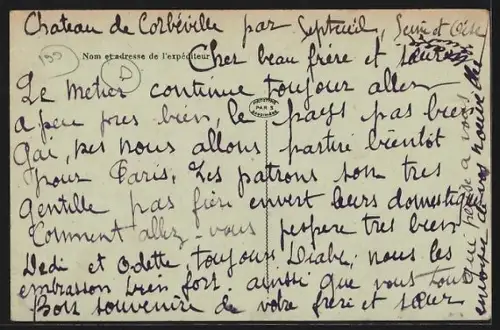 Chateau de Corbéville par Septeuil, Seine et Oise
Nom et adresse de l'expéditeur
Cher beau frère et sœur
Le metier continue toujour aller
a peu pres bien, le pays pas bien
gai, nous allons partire bientôt
pour Paris, Les patrons son tres
gentille pas fière envert leurs domestique
Comment allez-vous j'espere tres bien
Dedi et Odette toujours Diable, nous les
embrasson bien fort. ainsi que vous tous
Bons souvenire de votre frère et sœur
qui pense a vous